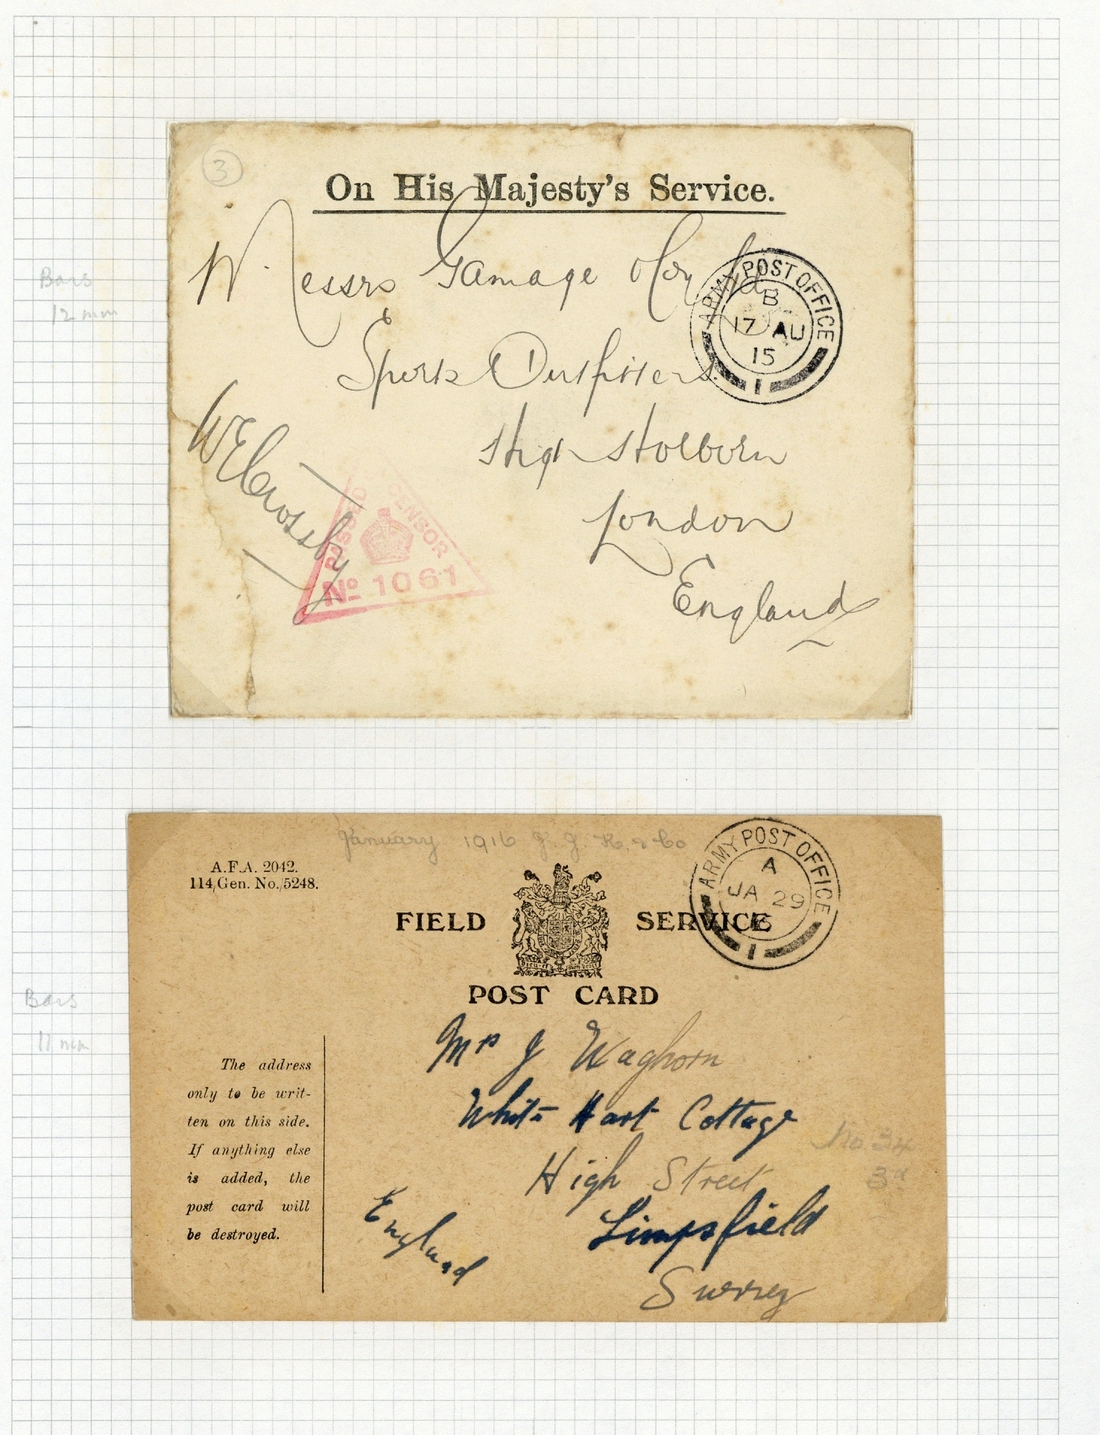 3
On His Majesty's Service.
Messrs Gamage & Co Ltd
ARMY POST OFFICE
B
17 AU
15
1
Bars
12 mm
Sports Outfitters
High Holborn
London
England
W E Crossby
PASSED CENSOR
No 1061
January 1916
A.F.A. 2042.
114/Gen. No./5248.
FIELD SERVICE
POST CARD
ARMY POST OFFICE
A
JA 29
1
Bars
11 mm
The address
only to be writ-
ten on this side.
If anything else
is added, the
post card will
be destroyed.
Mrs J Waghorn
White Hart Cottage
High Street
Limpsfield
Surrey
England
No. 34
3d